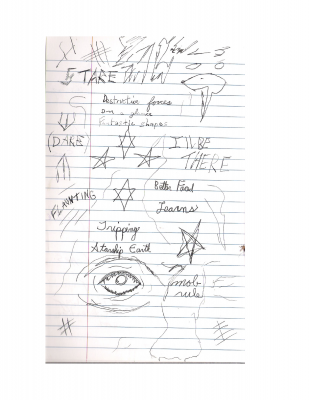 STARE
Destructive forces
Fantastic shapes
(DARE)
I'LL BE
THERE
FLAUNTING
Rotter Food
Learns
Tripping
Starship Earth
mob
rule